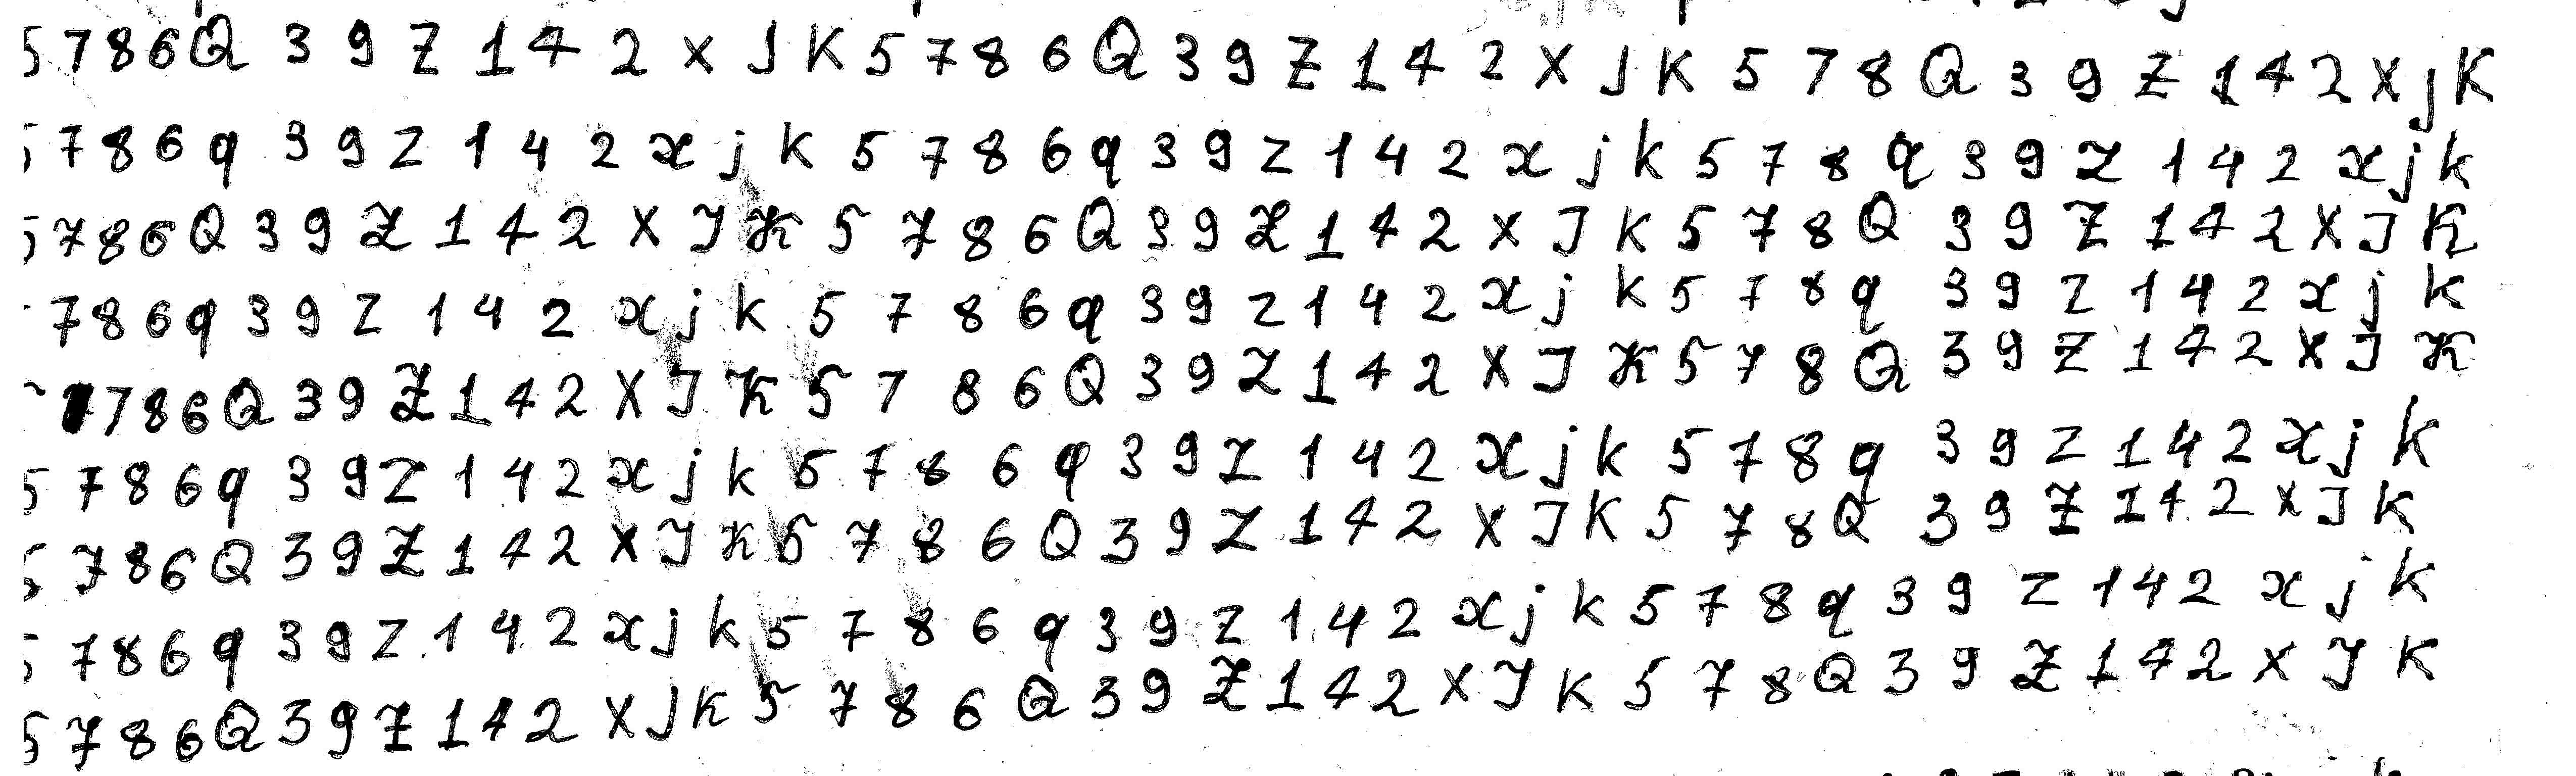 5 7 8 6 Q 3 9 Z 1 4 2 X J K 5 7 8 6 Q 3 9 Z 1 4 2 X J K 5 7 8 Q 3 9 Z 1 4 2 X j K
5 7 8 6 q 3 9 Z 1 4 2 x j k 5 7 8 6 q 3 9 z 1 4 2 x j k 5 7 8 q 3 9 z 1 4 2 x j k
5 7 8 6 Q 3 9 Z 1 4 2 X J K 5 7 8 6 Q 3 9 Z 1 4 2 X J K 5 7 8 Q 3 9 Z 1 4 2 X J K
7 8 6 q 3 9 z 1 4 2 x j k 5 7 8 6 q 3 9 z 1 4 2 x j k 5 7 8 q 3 9 z 1 4 2 x j k
7 8 6 Q 3 9 Z 1 4 2 X J K 5 7 8 6 Q 3 9 Z 1 4 2 X J K 5 7 8 Q 3 9 Z 1 4 2 X J K
5 7 8 6 q 3 9 z 1 4 2 x j k 5 7 8 6 q 3 9 z 1 4 2 x j k 5 7 8 q 3 9 z 1 4 2 x j k
5 7 8 6 Q 3 9 Z 1 4 2 X J K 5 7 8 6 Q 3 9 Z 1 4 2 X J K 5 7 8 Q 3 9 Z 1 4 2 X J K
5 7 8 6 q 3 9 z 1 4 2 x j k 5 7 8 6 q 3 9 z 1 4 2 x j k 5 7 8 q 3 9 z 1 4 2 x j k
5 7 8 6 Q 3 9 Z 1 4 2 X J K 5 7 8 6 Q 3 9 Z 1 4 2 X J K 5 7 8 Q 3 9 Z 1 4 2 X J K